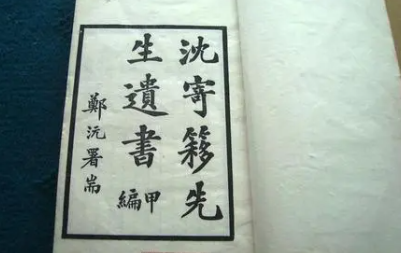 沈寄簃先
生遺書甲編
鄭沅署耑